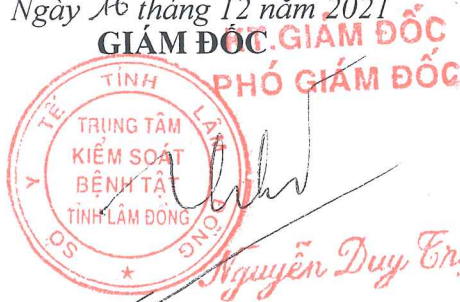 Ngày 16 tháng 12 năm 2021
GIÁM ĐỐC
KT.GIÁM ĐỐC
PHÓ GIÁM ĐỐC
SỞ Y TẾ TỈNH LÂM ĐỒNG
TRUNG TÂM
KIỂM SOÁT
BỆNH TẬT
TỈNH LÂM ĐỒNG
Nguyễn Duy